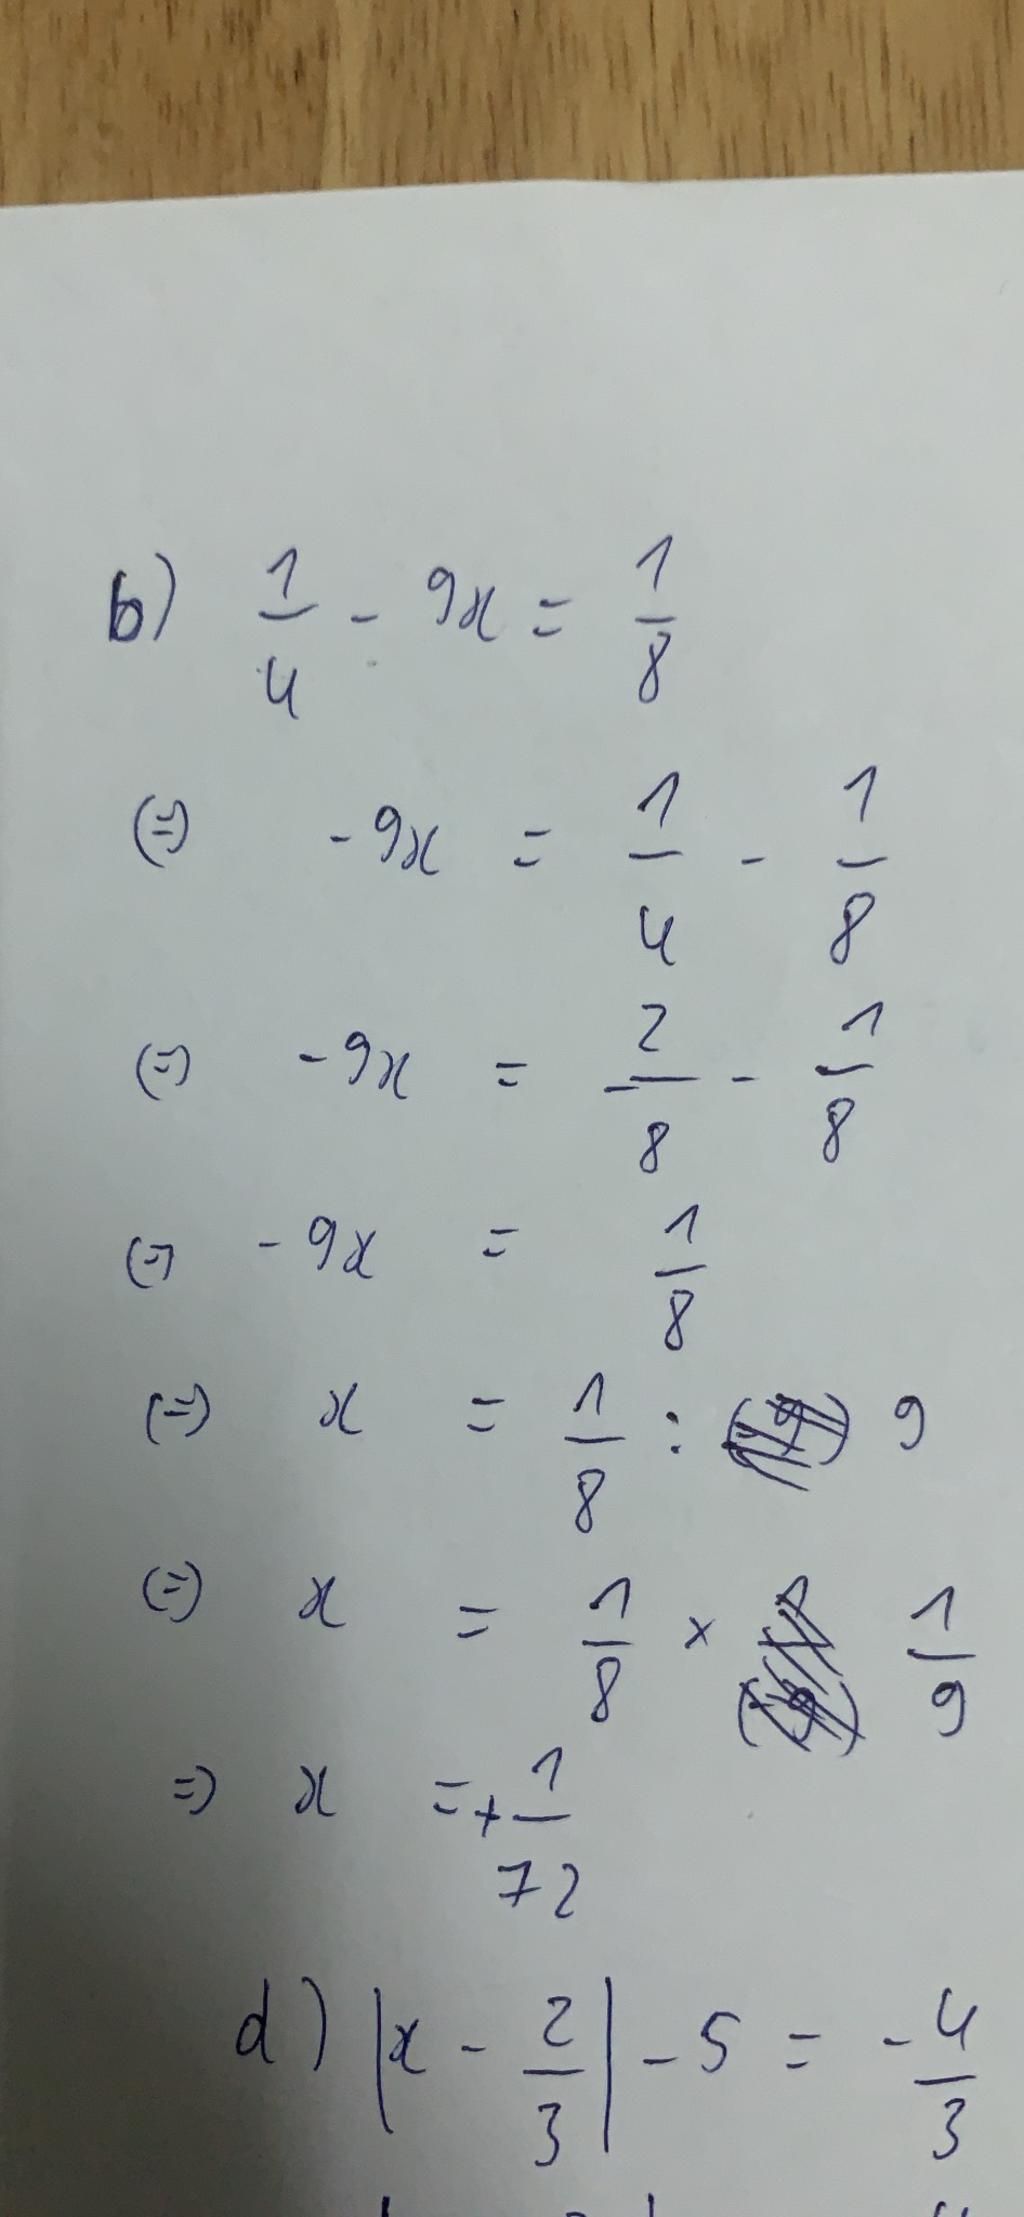 b) 1/4 - 9x = 1/8
(=) -9x = 1/4 - 1/8
(=) -9x = 2/8 - 1/8
(=) -9x = 1/8
(=) x = 1/8 : 9
(=) x = 1/8 × 1/9
=) x = + 1/72
d) |x - 2/3| - 5 = - 4/3